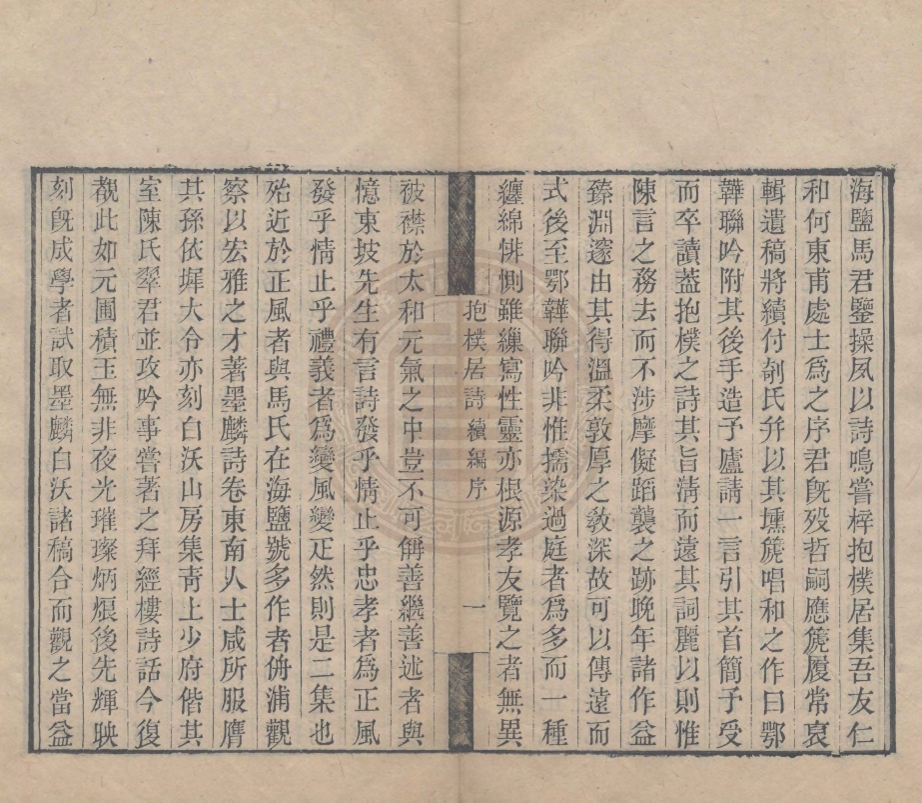 海鹽馬君鑒操夙以詩鳴嘗梓抱樸居集吾友仁
和何東甫處士爲之序君旣歿哲嗣應篪履常裒
輯遺稿將續付剞氏幷以其壎篪唱和之作曰鄂
韡聯吟附其後手造予廬請一言引其首簡予受
而卒讀蓋抱樸之詩其旨淸而遠其詞麗以則惟
陳言之務去而不涉摩儗蹈襲之跡晚年諸作益
臻淵邃由其得溫柔敦厚之敎深故可以傳遠而
式後至鄂韡聯吟非惟擩染過庭者爲多而一種
纏綿悱惻雖繅寫性靈亦根源孝友覽之者無異
抱樸居詩續編序 一
被襟於太和元氣之中豈不可偁善繼善述者與
憶東坡先生有言詩發乎情止乎忠孝者爲正風
發乎情止乎禮義者爲變風變正然則是二集也
殆近於正風者與馬氏在海鹽號多作者侜浦觀
察以宏雅之才著墨麟詩卷東南人士咸所服膺
其孫依墀大令亦刻白沃山房集靑上少府偕其
室陳氏翠君並攻吟事嘗著之拜經樓詩話今復
覩此如元圃積玉無非夜光璀璨炳烺後先輝映
刻旣成學者試取墨麟白沃諸稿合而觀之當益